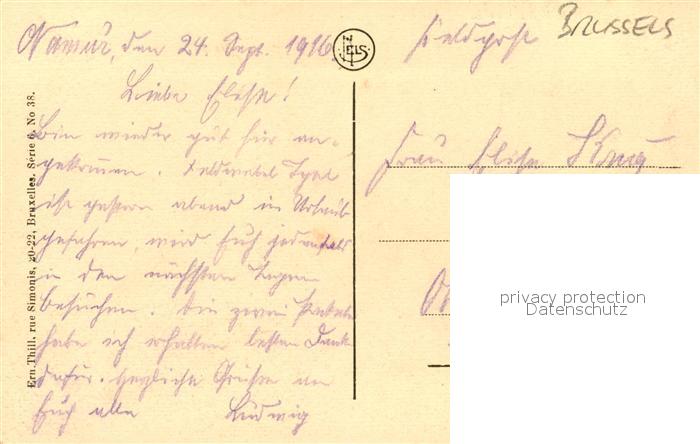 Namur, den 24. Sept. 1916.
Liebe Elise!
Bin wieder gut hier an-
gekommen. Feldwebel
ist gestern abend in Urlaub
gefahren, wird Euch jedenfals
in den nächsten Tagen
besuchen. Die zwei Pakete
habe ich erhalten besten Dank
dafür. Herzliche Grüsse an
Euch alle Ludwig
Ern. Thill, rue Simonis, 20-22, Bruxelles. Série 6, No 38.
NELS
Feldpost
BRUSSELS
Frau Elise Krug
privacy protection
Datenschutz